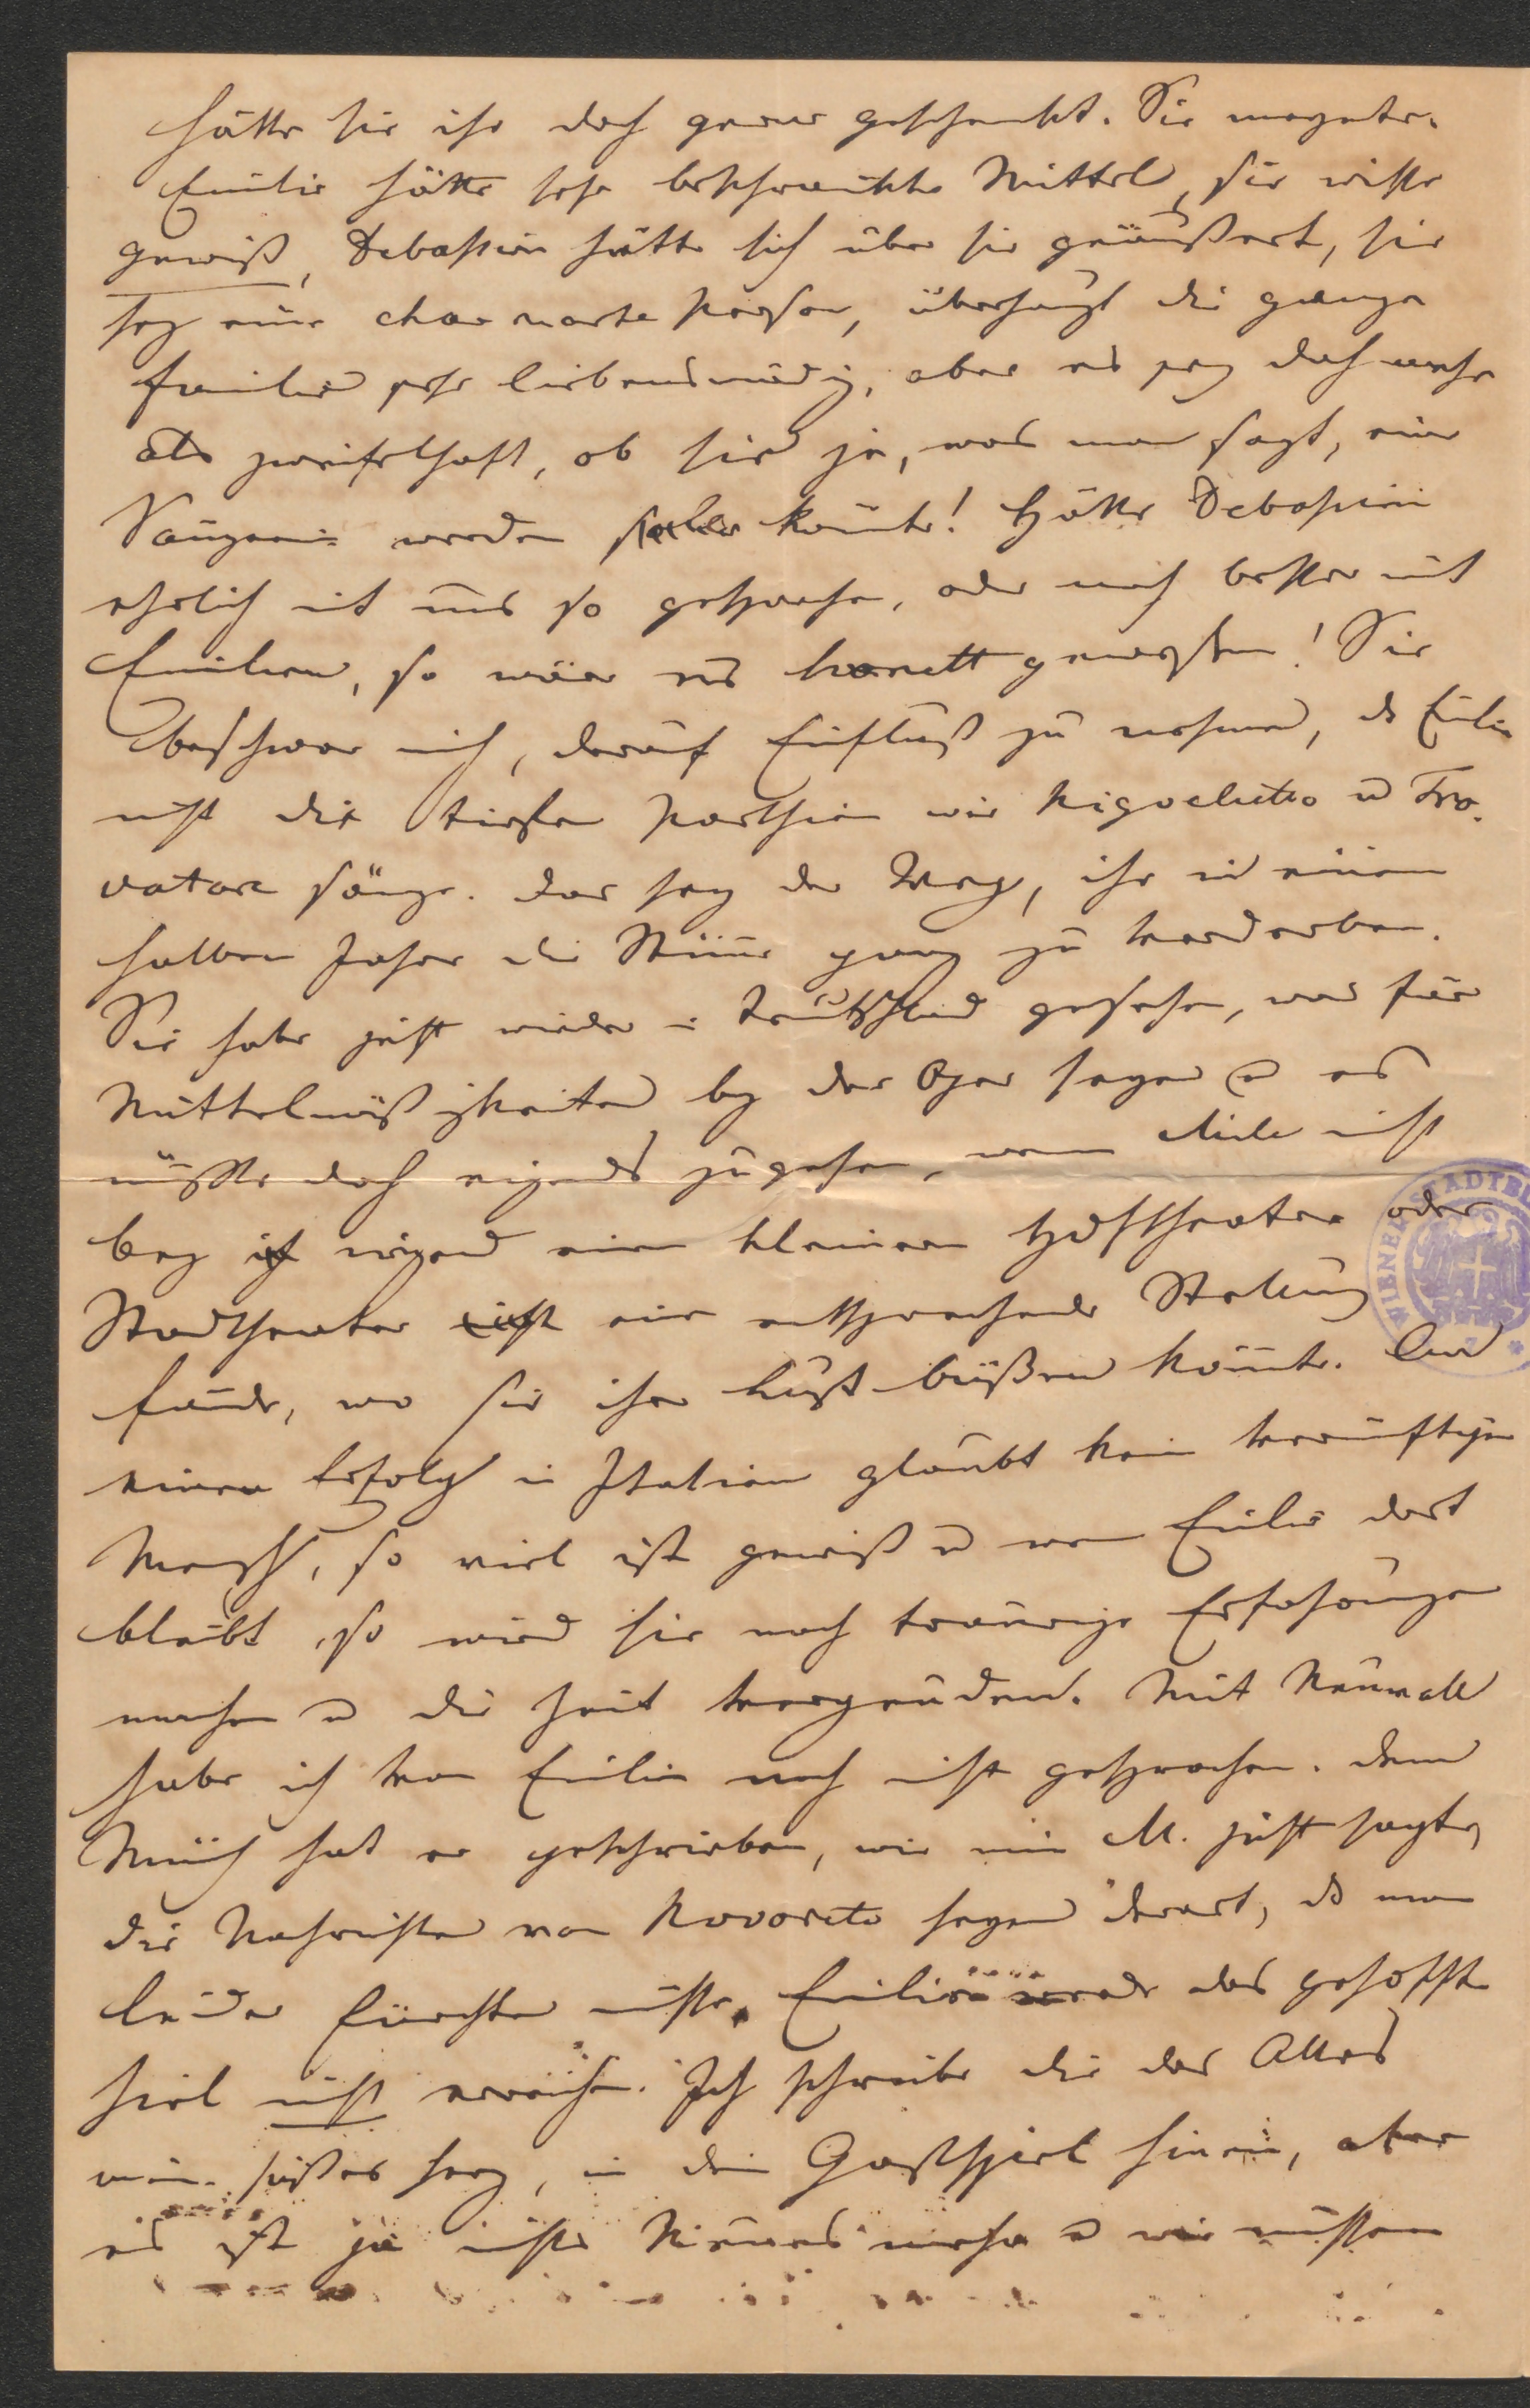 hätte sie ihr doch gerne geschenkt. Sie meynte,
Emilie hätte sehr beschränkte Mittel, sie wisse
gewiß, Debassini hätte sich über sie geäußert, sie
sey eine charmante Person, überhaupt die ganze
Familie sehr liebenswürdig, aber es sey doch mehr
als zweifelhaft, ob sie je, was man sagt, eine
Sängerin werden könnte! Hätte Debassini
ehrlich mit uns so gesprochen, oder noch besser mit
Emilien, so wäre es honett gewesen! Sie
beschwor mich, darauf Einfluß zu nehmen, dß Emilie
nicht die tiefen Parthien wie Rigoletto u Tro-
vatore sänge. Das sey der Weg, ihr in einem
halben Jahre die Stimme ganz zu verderben.
Sie habe jetzt wieder in Deutschland gesehen, was für
Mittelmäßigkeiten bey der Oper seyen u es
müßte doch eigends zugehen, wenn Mile nicht
bey irgend einem kleinern Hoftheater oder
Stadttheater eine entsprechende Stellung
fände, wo sie ihre Lust büßen könnte. An
einen Erfolg in Italien glaubt kein vernünftiger
Mensch, so viel ist gewiß u wenn Emilie dort
bleibt, so wird sie noch traurige Erfahrungen
machen u die Zeit vergeuden. Mit Neuwall
habe ich von Emilie noch nicht gesprochen. Dem
Münch hat er geschrieben, wie mir M. jetzt sagte,
die Nachrichten von Rovoreto seyen derart, dß man
leider fürchten müsse, Emilie werde das gehoffte
Ziel nicht erreichen. Ich schreibe dir das Alles
mein süßes Herz, in dein Gastspiel hinein, aber
es ist ja nichts Neues mehr u wir müssen